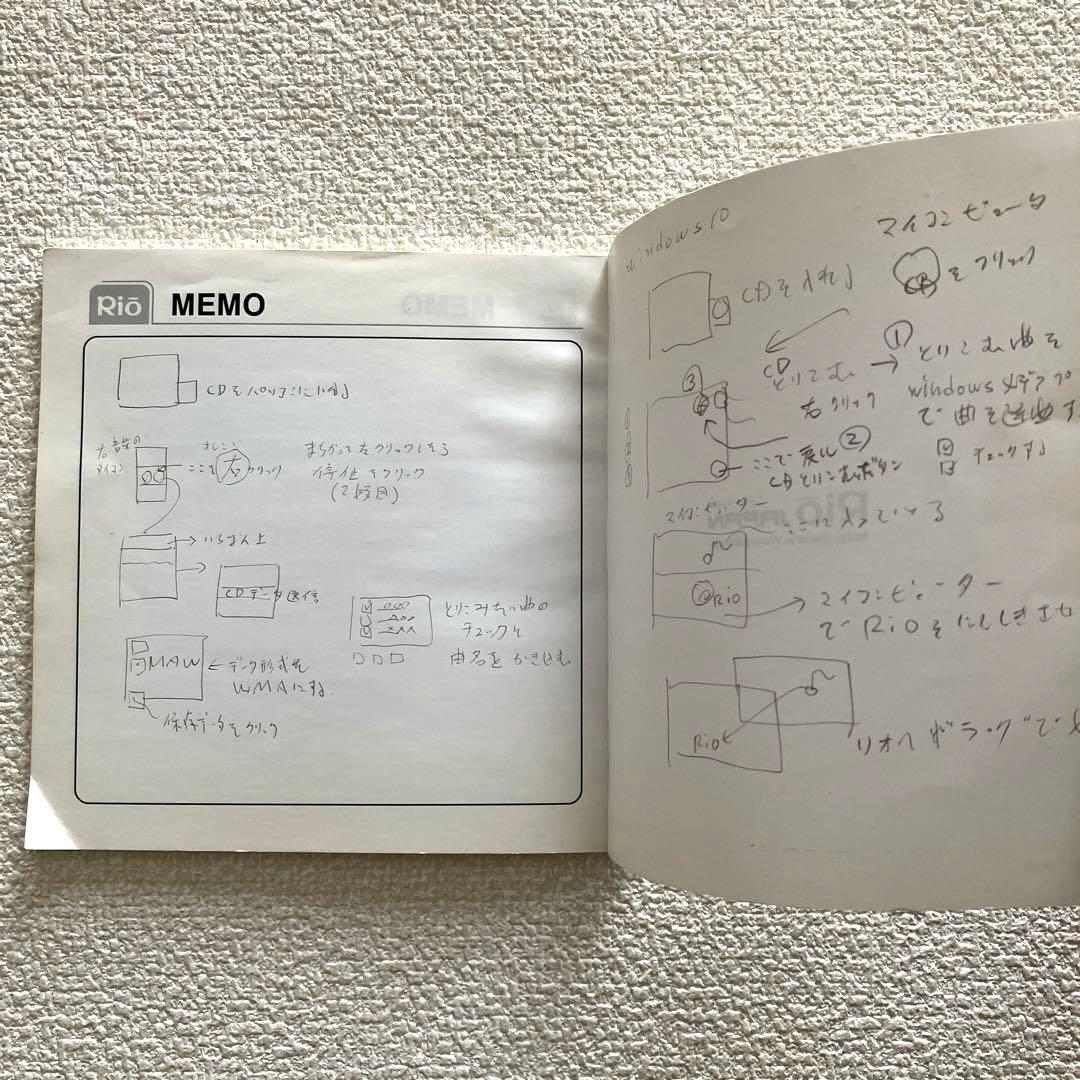 Rio MEMO
CDをパソコンに入れ
右音楽の
アイコン
オレンジ
ここを右クリック
まちがって右クリックしたら
停止をクリック
(2段目)
いちばん上
CDデータ送信
とりこみたい曲の
チェックを
曲名をかき込む
WMA
データ形式を
WMAにする。
保存データをクリック
windows 10
CDを入れ
マイコンピュータ
CDをクリック
CD
とりこむ
右クリック
①
とりこむ曲を
windows メデアプ
で曲を選曲す
チェックする
③
ここで戻ル ②
CDとりこむボタン
マイコンピーター
ここに入っている
Rio
マイコンピューター
でRioをにんしきさせ
Rio
リオへドラッグで